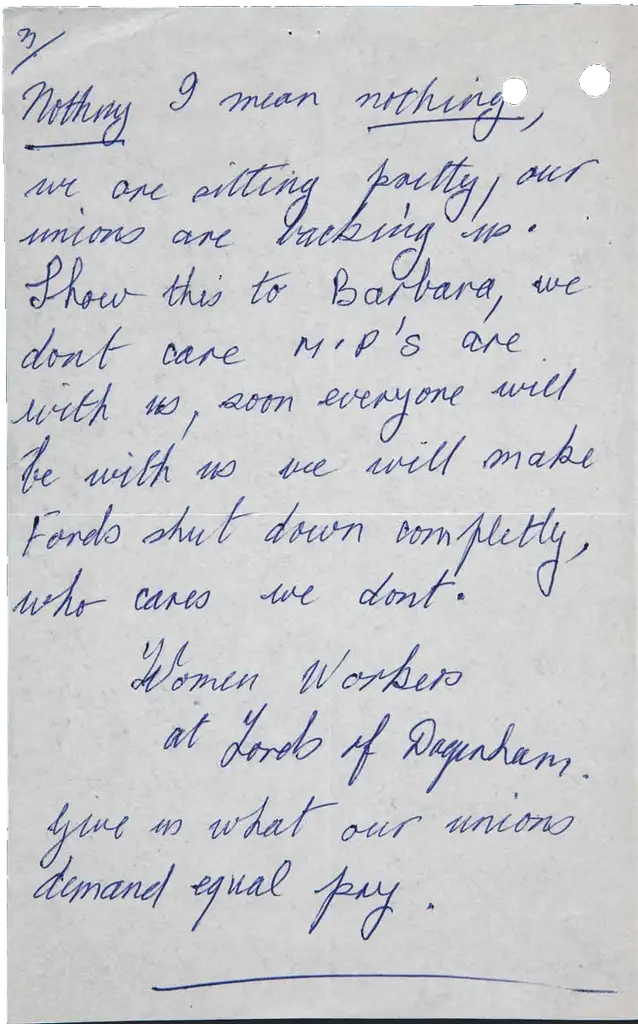 3/
Nothing I mean nothing,
we are sitting pretty, our
unions are backing us.
Show this to Barbara, we
dont care M.P's are
with us, soon everyone will
be with us we will make
Fords shut down completly,
who cares we dont.
Women Workers
at Fords of Dagenham.
Give us what our unions
demand equal pay.